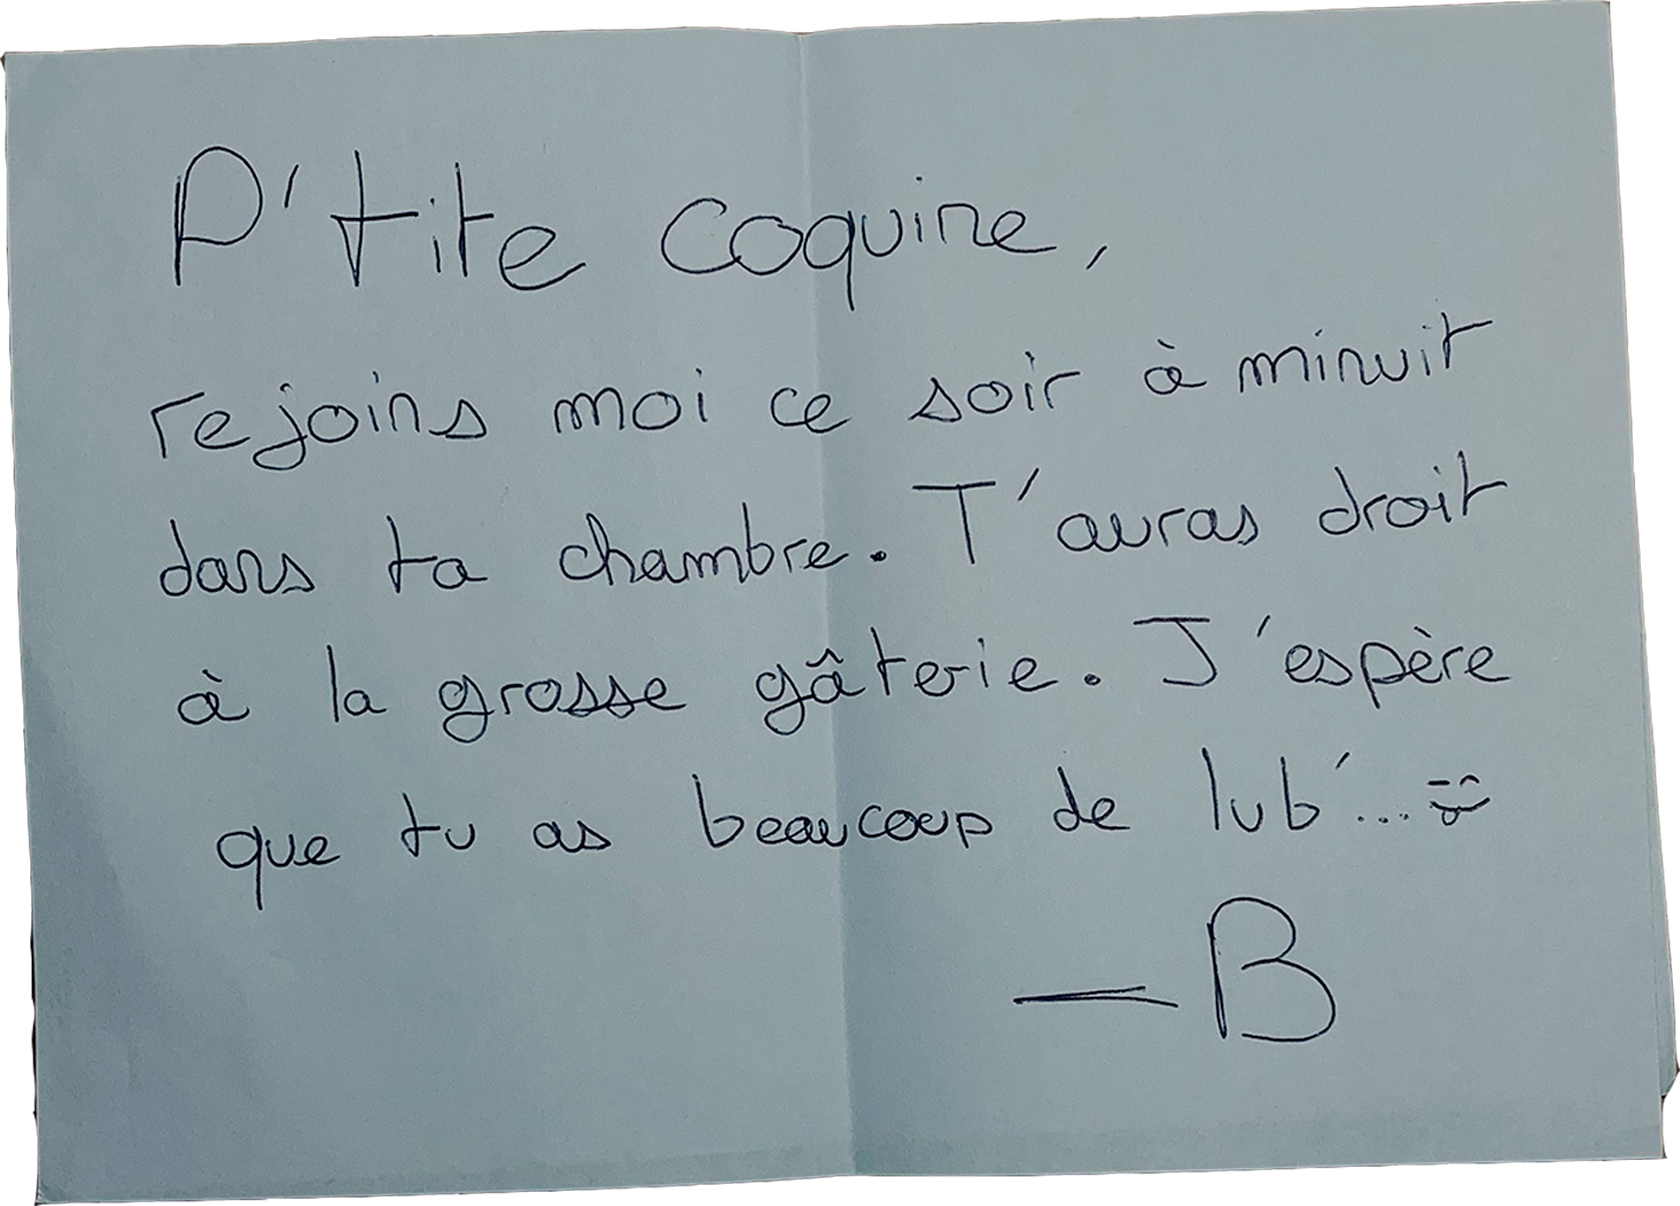 P'tite coquine,
rejoins moi ce soir à minuit
dans ta chambre. T'auras droit
à la grosse gâterie. J'espère
que tu as beaucoup de lub'...
— B